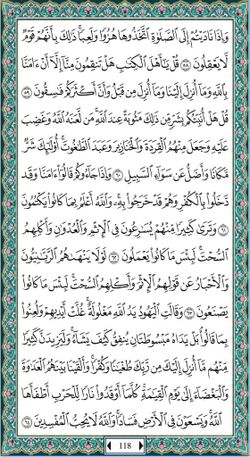 وَإِذَا نَادَيْتُمْ إِلَى ٱلصَّلَوٰةِ ٱتَّخَذُوهَا هُزُوًا وَلَعِبًا ذَٰلِكَ بِأَنَّهُمْ قَوْمٌ
لَّا يَعْقِلُونَ ٥٨ قُلْ يَٰٓأَهْلَ ٱلْكِتَٰبِ هَلْ تَنقِمُونَ مِنَّآ إِلَّآ أَنْ ءَامَنَّا
بِٱللَّهِ وَمَآ أُنزِلَ إِلَيْنَا وَمَآ أُنزِلَ مِن قَبْلُ وَأَنَّ أَكْثَرَكُمْ فَٰسِقُونَ ٥٩
قُلْ هَلْ أُنَبِّئُكُم بِشَرٍّ مِّن ذَٰلِكَ مَثُوبَةً عِندَ ٱللَّهِ مَن لَّعَنَهُ ٱللَّهُ وَغَضِبَ
عَلَيْهِ وَجَعَلَ مِنْهُمُ ٱلْقِرَدَةَ وَٱلْخَنَازِيرَ وَعَبَدَ ٱلطَّٰغُوتَ أُو۟لَٰٓئِكَ شَرٌّ
مَّكَانًا وَأَضَلُّ عَن سَوَآءِ ٱلسَّبِيلِ ٦٠ وَإِذَا جَآءُوكُمْ قَالُوٓا۟ ءَامَنَّا وَقَد
دَّخَلُوا۟ بِٱلْكُفْرِ وَهُمْ قَدْ خَرَجُوا۟ بِهِۦ وَٱللَّهُ أَعْلَمُ بِمَا كَانُوا۟ يَكْتُمُونَ
٦١ وَتَرَىٰ كَثِيرًا مِّنْهُمْ يُسَٰرِعُونَ فِى ٱلْإِثْمِ وَٱلْعُدْوَٰنِ وَأَكْلِهِمُ
ٱلسُّحْتَ لَبِئْسَ مَا كَانُوا۟ يَعْمَلُونَ ٦٢ لَوْلَا يَنْهَىٰهُمُ ٱلرَّبَّٰنِيُّونَ
وَٱلْأَحْبَارُ عَن قَوْلِهِمُ ٱلْإِثْمَ وَأَكْلِهِمُ ٱلسُّحْتَ لَبِئْسَ مَا كَانُوا۟
يَصْنَعُونَ ٦٣ وَقَالَتِ ٱلْيَهُودُ يَدُ ٱللَّهِ مَغْلُولَةٌ غُلَّتْ أَيْدِيهِمْ وَلُعِنُوا۟
بِمَا قَالُوا۟ بَلْ يَدَاهُ مَبْسُوطَتَانِ يُنفِقُ كَيْفَ يَشَآءُ وَلَيَزِيدَنَّ كَثِيرًا
مِّنْهُم مَّآ أُنزِلَ إِلَيْكَ مِن رَّبِّكَ طُغْيَٰنًا وَكُفْرًا وَأَلْقَيْنَا بَيْنَهُمُ ٱلْعَدَٰوَةَ
وَٱلْبَغْضَآءَ إِلَىٰ يَوْمِ ٱلْقِيَٰمَةِ كُلَّمَآ أَوْقَدُوا۟ نَارًا لِّلْحَرْبِ أَطْفَأَهَا
ٱللَّهُ وَيَسْعَوْنَ فِى ٱلْأَرْضِ فَسَادًا وَٱللَّهُ لَا يُحِبُّ ٱلْمُفْسِدِينَ ٦٤
118